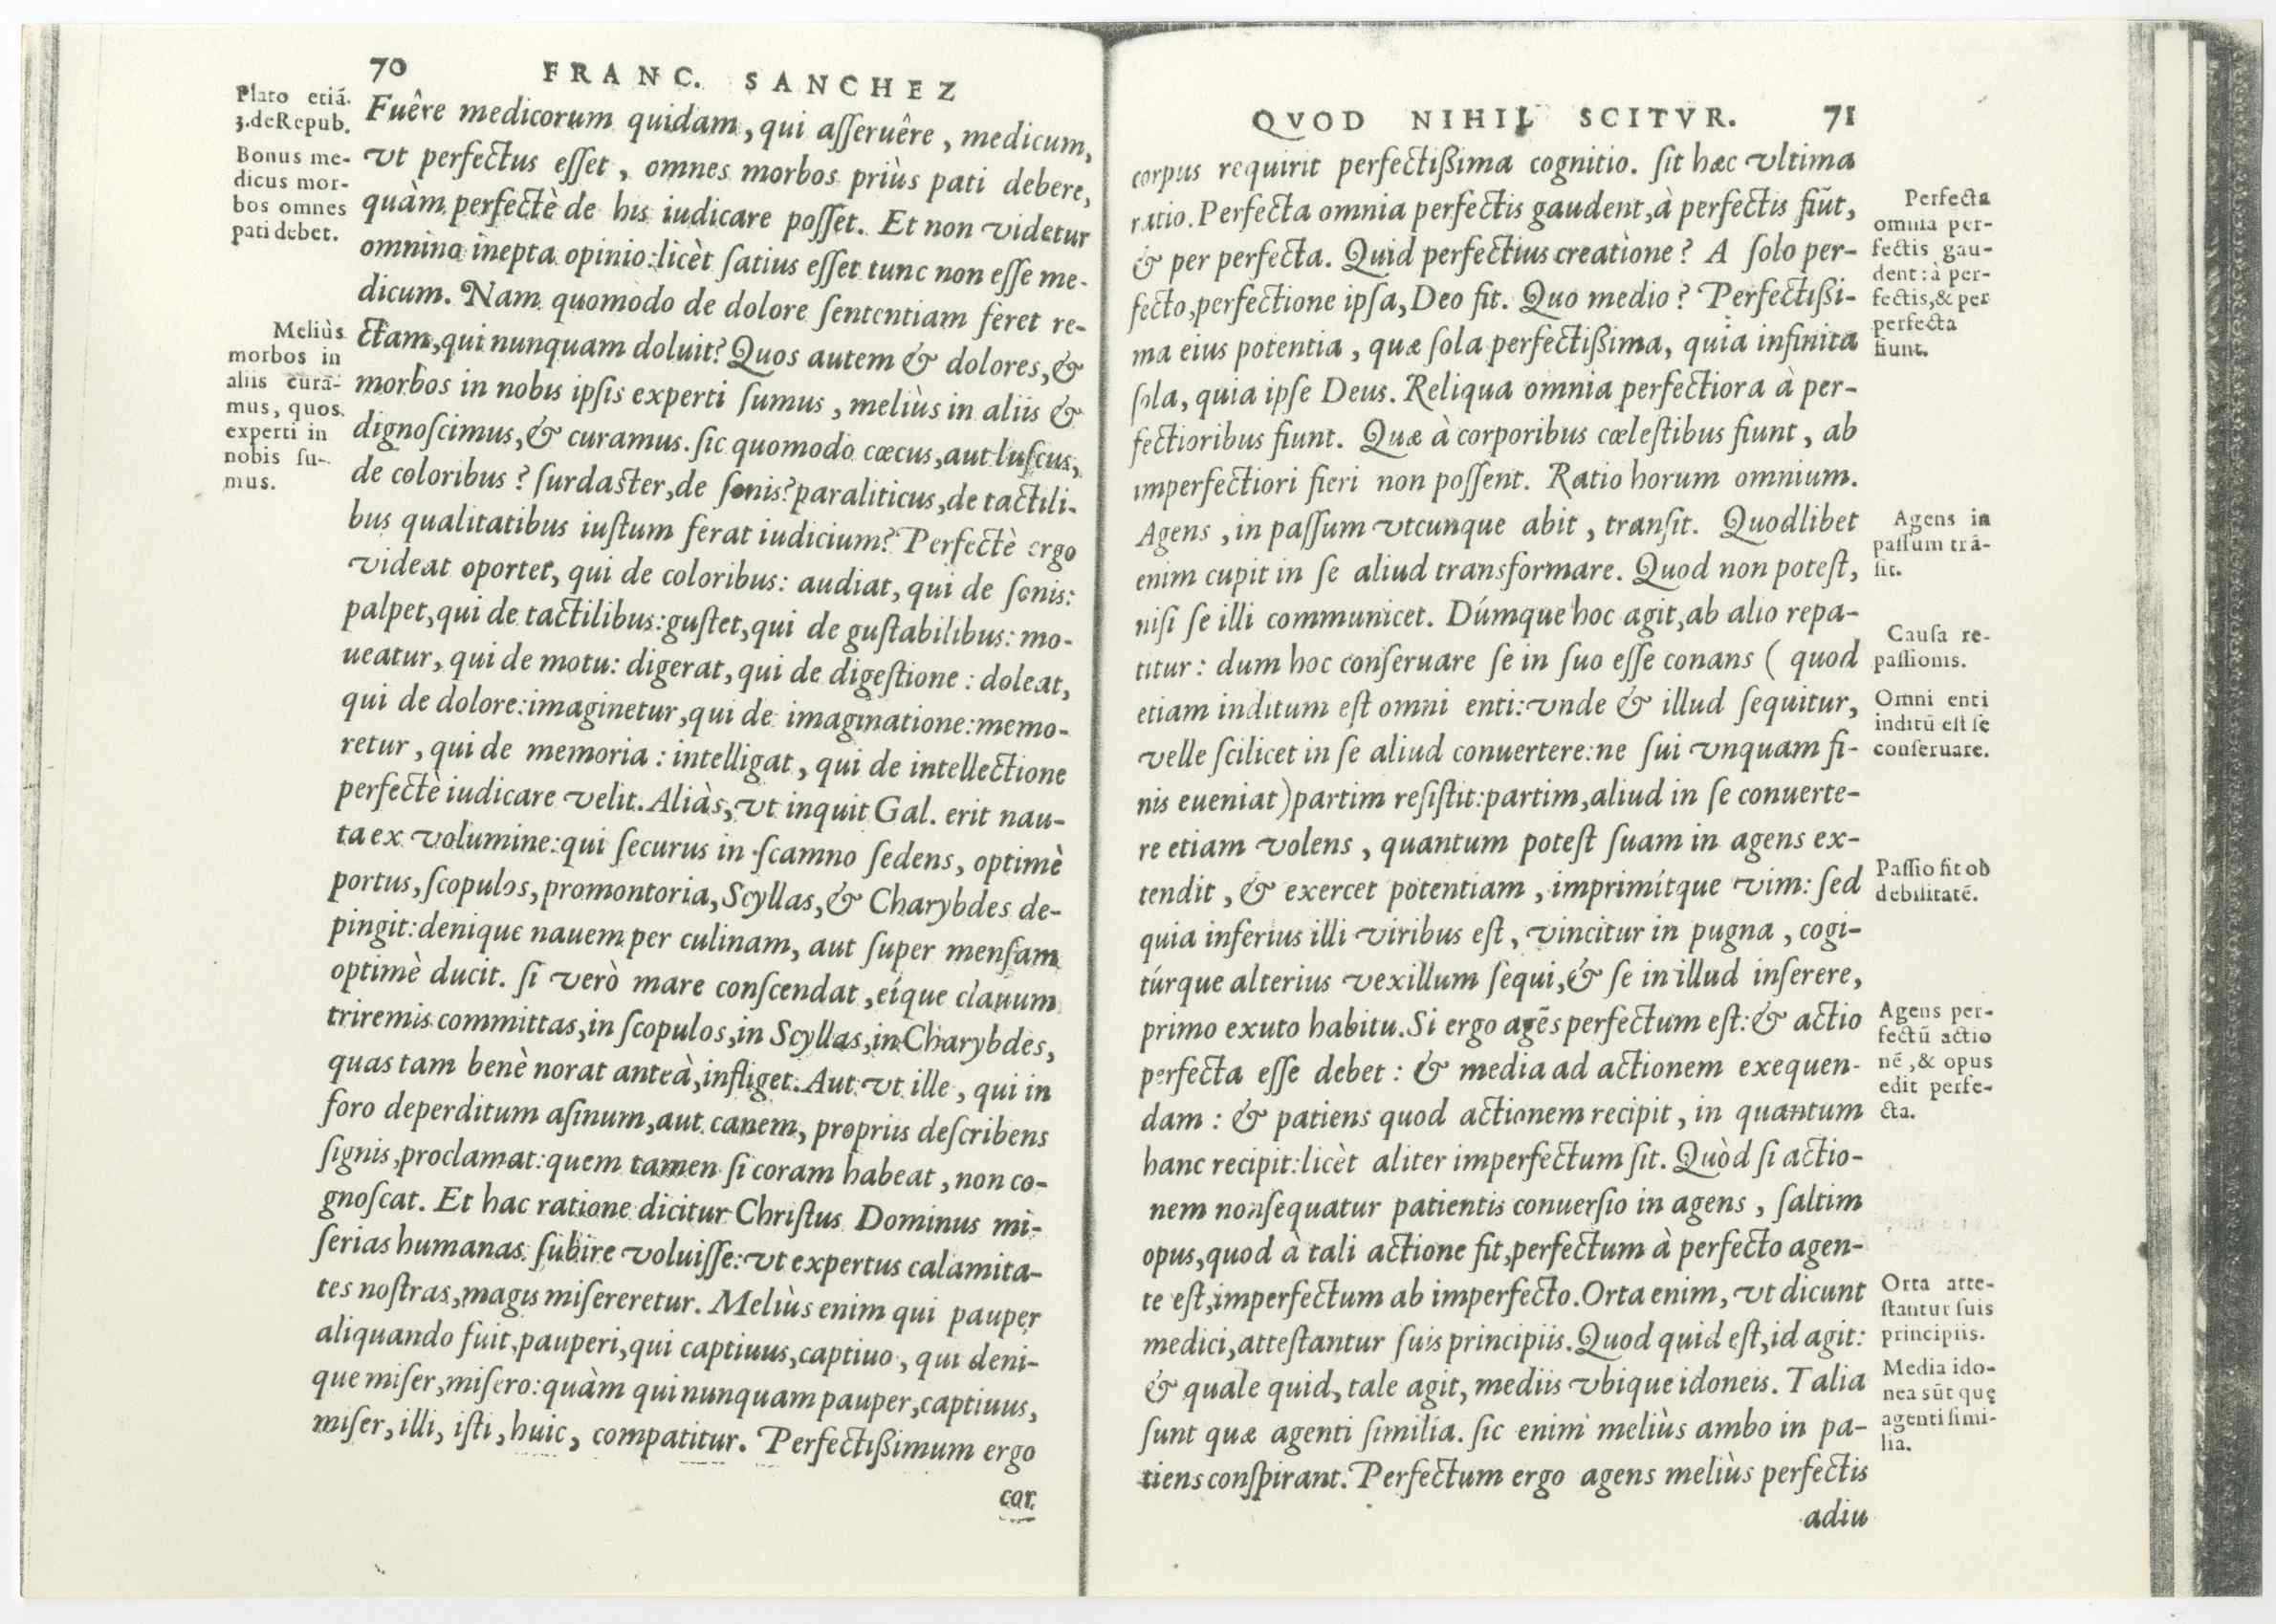 70 FRANC. SANCHEZ
Plato etiã.
3.deRepub.
Bonus me-
dicus mor-
bos omnes
pati debet.
Meliùs
morbos in
aliis curã-
mus, quos
experti in
nobis su-
mus.
Fuêre medicorum quidam, qui aſſeruêre, medicum,
vt perfectus eſſet, omnes morbos priùs pati debere,
quàm perfectè de his iudicare poſſet. Et non videtur
omnino inepta opinio: licèt ſatius eſſet tunc non eſſe me-
dicum. Nam quomòdo de dolore ſententiam feret re-
ctam, qui nunquam doluit? Quos autem & dolores, &
morbos in nobis ipſis experti ſumus, meliùs in aliis &
dignoſcimus, & curamus. ſic quomodo cæcus, aut luſcus,
de coloribus? ſurdaſter, de ſonis? paraliticus, de tactili-
bus qualitatibus iuſtum ferat iudicium? Perfectè ergo
videat oportet, qui de coloribus: audiat, qui de ſonis:
palpet, qui de tactilibus: guſtet, qui de guſtabilibus: mo-
ueatur, qui de motu: digerat, qui de digeſtione: doleat,
qui de dolore: imaginetur, qui de imaginatione: memo-
retur, qui de memoria: intelligat, qui de intellectione
perfectè iudicare velit. Aliàs, vt inquit Gal. erit nau-
ta ex volumine: qui ſecurus in ſcamno ſedens, optimè
portus, ſcopulos, promontoria, Scyllas, & Charybdes de-
pingit: denique nauem per culinam, aut ſuper menſam
optimè ducit. ſi verò mare conſcendat, eíque clauum
triremis committas, in ſcopulos, in Scyllas, in Charybdes,
quas tam benè norat anteà, infliget. Aut vt ille, qui in
foro deperditum aſinum, aut canem, propriis deſcribens
ſignis, proclamat: quem tamen ſi coram habeat, non co-
gnoſcat. Et hac ratione dicitur Chriſtus Dominus mi-
ſerias humanas ſubire voluiſſe: vt expertus calamita-
tes noſtras, magis miſereretur. Meliùs enim qui pauper
aliquando fuit, pauperi, qui captiuus, captiuo, qui deni-
que miſer, miſero: quàm qui nunquam pauper, captiuus,
miſer, illi, iſti, huic, compatitur. Perfectißimum ergo
cor.
QVOD NIHIL SCITVR. 71
corpus requirit perfectißima cognitio. ſit hæc vltima
ratio. Perfecta omnia perfectis gaudent, à perfectis fiũt,
& per perfecta. Quid perfectius creatione? A ſolo per-
fecto, perfectione ipſa, Deo fit. Quo medio? Perfectißi-
ma eius potentia, quæ ſola perfectißima, quia infinita
ſola, quia ipſe Deus. Reliqua omnia perfectiora à per-
fectioribus fiunt. Quæ à corporibus cœleſtibus fiunt, ab
imperfectiori fieri non poſſent. Ratio horum omnium.
Agens, in paſſum vtcunque abit, tranſit. Quodlibet
enim cupit in ſe aliud transformare. Quod non poteſt,
niſi ſe illi communicet. Dúmque hoc agit, ab alio repa-
titur: dum hoc conſeruare ſe in ſuo eſſe conans ( quod
etiam inditum eſt omni enti: vnde & illud ſequitur,
velle ſcilicet in ſe aliud conuertere: ne ſui vnquam fi-
nis eueniat) partim reſiſtit: partim, aliud in ſe conuerte-
re etiam volens, quantum poteſt ſuam in agens ex-
tendit, & exercet potentiam, imprimítque vim: ſed
quia inferius illi viribus eſt, vincitur in pugna, cogi-
túrque alterius vexillum ſequi, & ſe in illud inſerere,
primo exuto habitu. Si ergo agẽs perfectum eſt: & actio
perfecta eſſe debet: & media ad actionem exequen-
dam: & patiens quod actionem recipit, in quantum
hanc recipit: licèt aliter imperfectum ſit. Quòd ſi actio-
nem non ſequatur patientis conuerſio in agens, ſaltim
opus, quod à tali actione fit, perfectum à perfecto agen-
te eſt, imperfectum ab imperfecto. Orta enim, vt dicunt
medici, atteſtantur ſuis principiis. Quod quid eſt, id agit:
& quale quid, tale agit, mediis vbique idoneis. Talia
ſunt quæ agenti ſimilia. ſic enim meliùs ambo in pa-
tiens conſpirant. Perfectum ergo agens meliùs perfectis
adiu
Perfecta
omnia per-
fectis gau-
dent: à per-
fectis, & per
perfecta
fiunt.
Agens in
paſſum trã-
ſit.
Cauſa re-
paſſionis.
Omni enti
inditũ eſt ſe
conſeruare.
Paſſio fit ob
debilitatẽ.
Agens per-
fectũ actio
nẽ, & opus
edit perfe-
cta.
Orta atte-
ſtantur ſuis
principiis.
Media ido-
nea sũt quę
agenti ſimi-
lia.